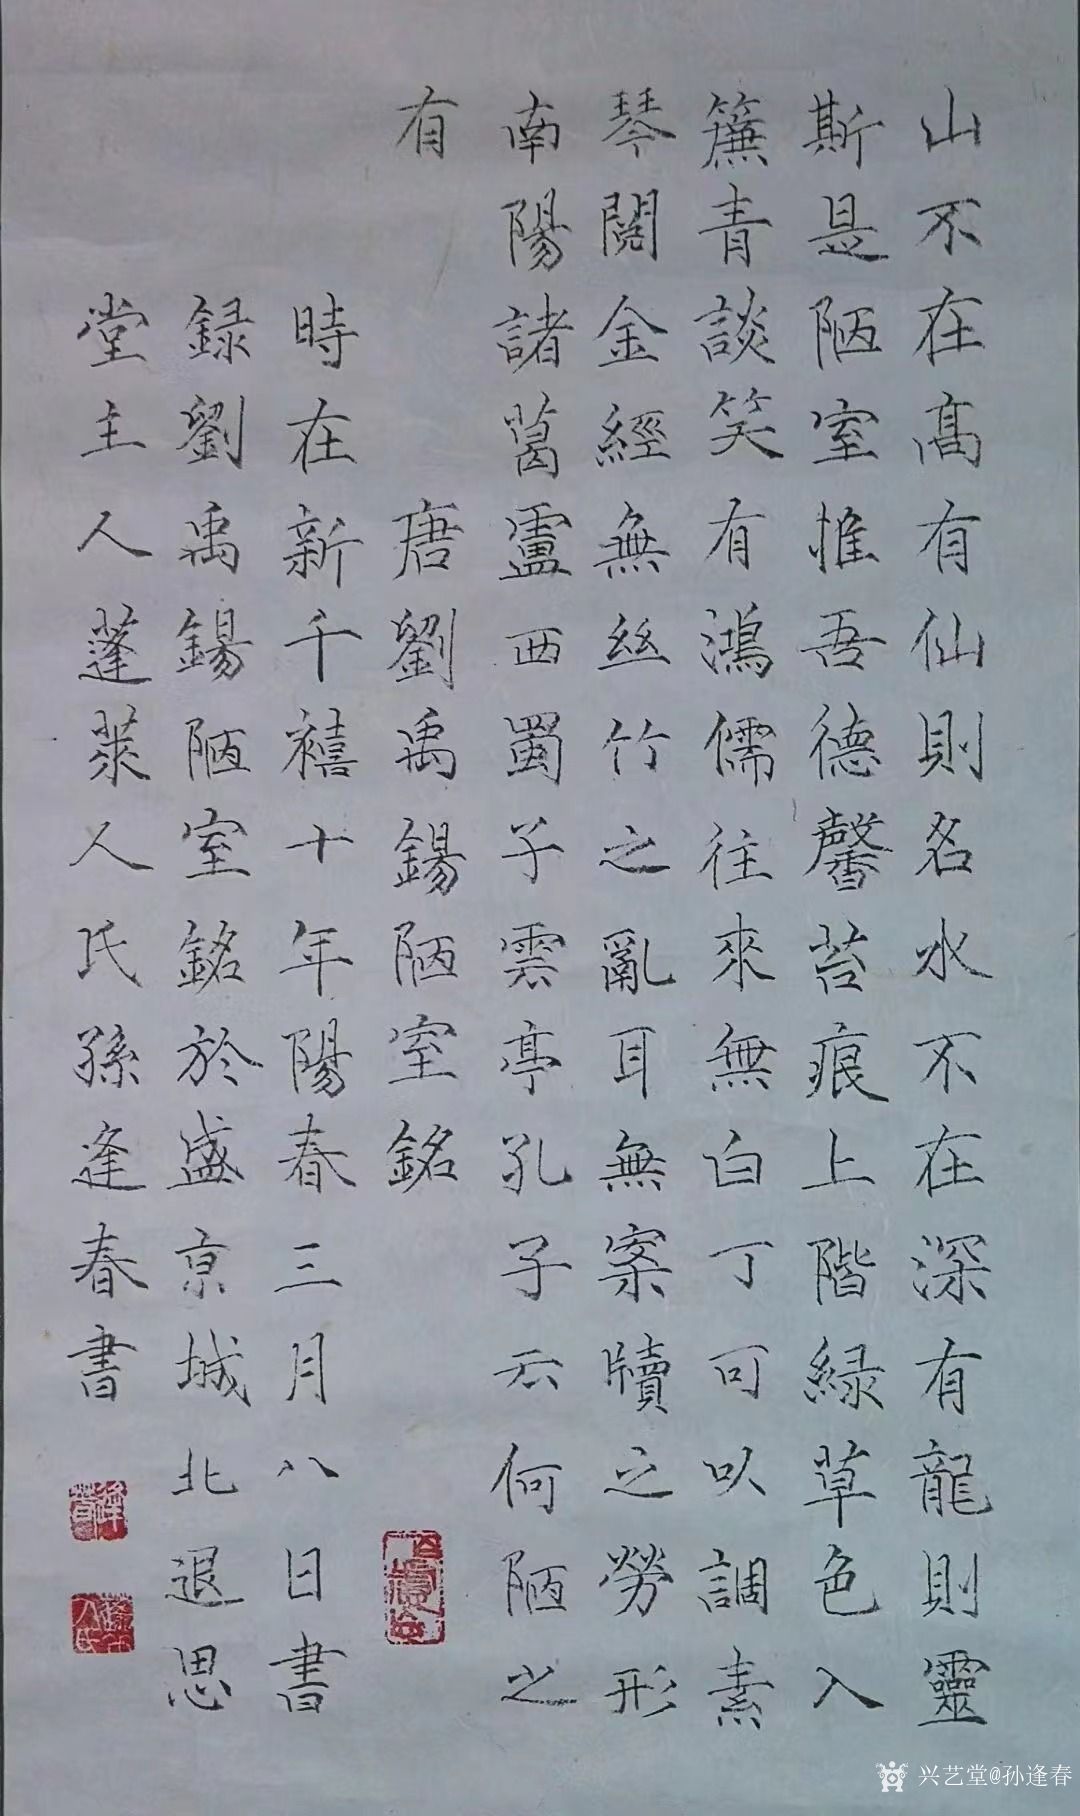 山不在高有仙則名水不在深有龍則靈
斯是陋室惟吾德馨苔痕上階緑草色入
簾青談笑有鴻儒往來無白丁可以調素
琴閱金經無絲竹之亂耳無案牘之勞形
南陽諸葛盧西蜀子雲亭孔子云何陋之
有
唐劉禹錫陋室銘
時在新千禧十年陽春三月八日書
録劉禹錫陋室銘於盛京城北退思
堂主人蓬萊人氏孫逢春書
兴艺堂@孙逢春